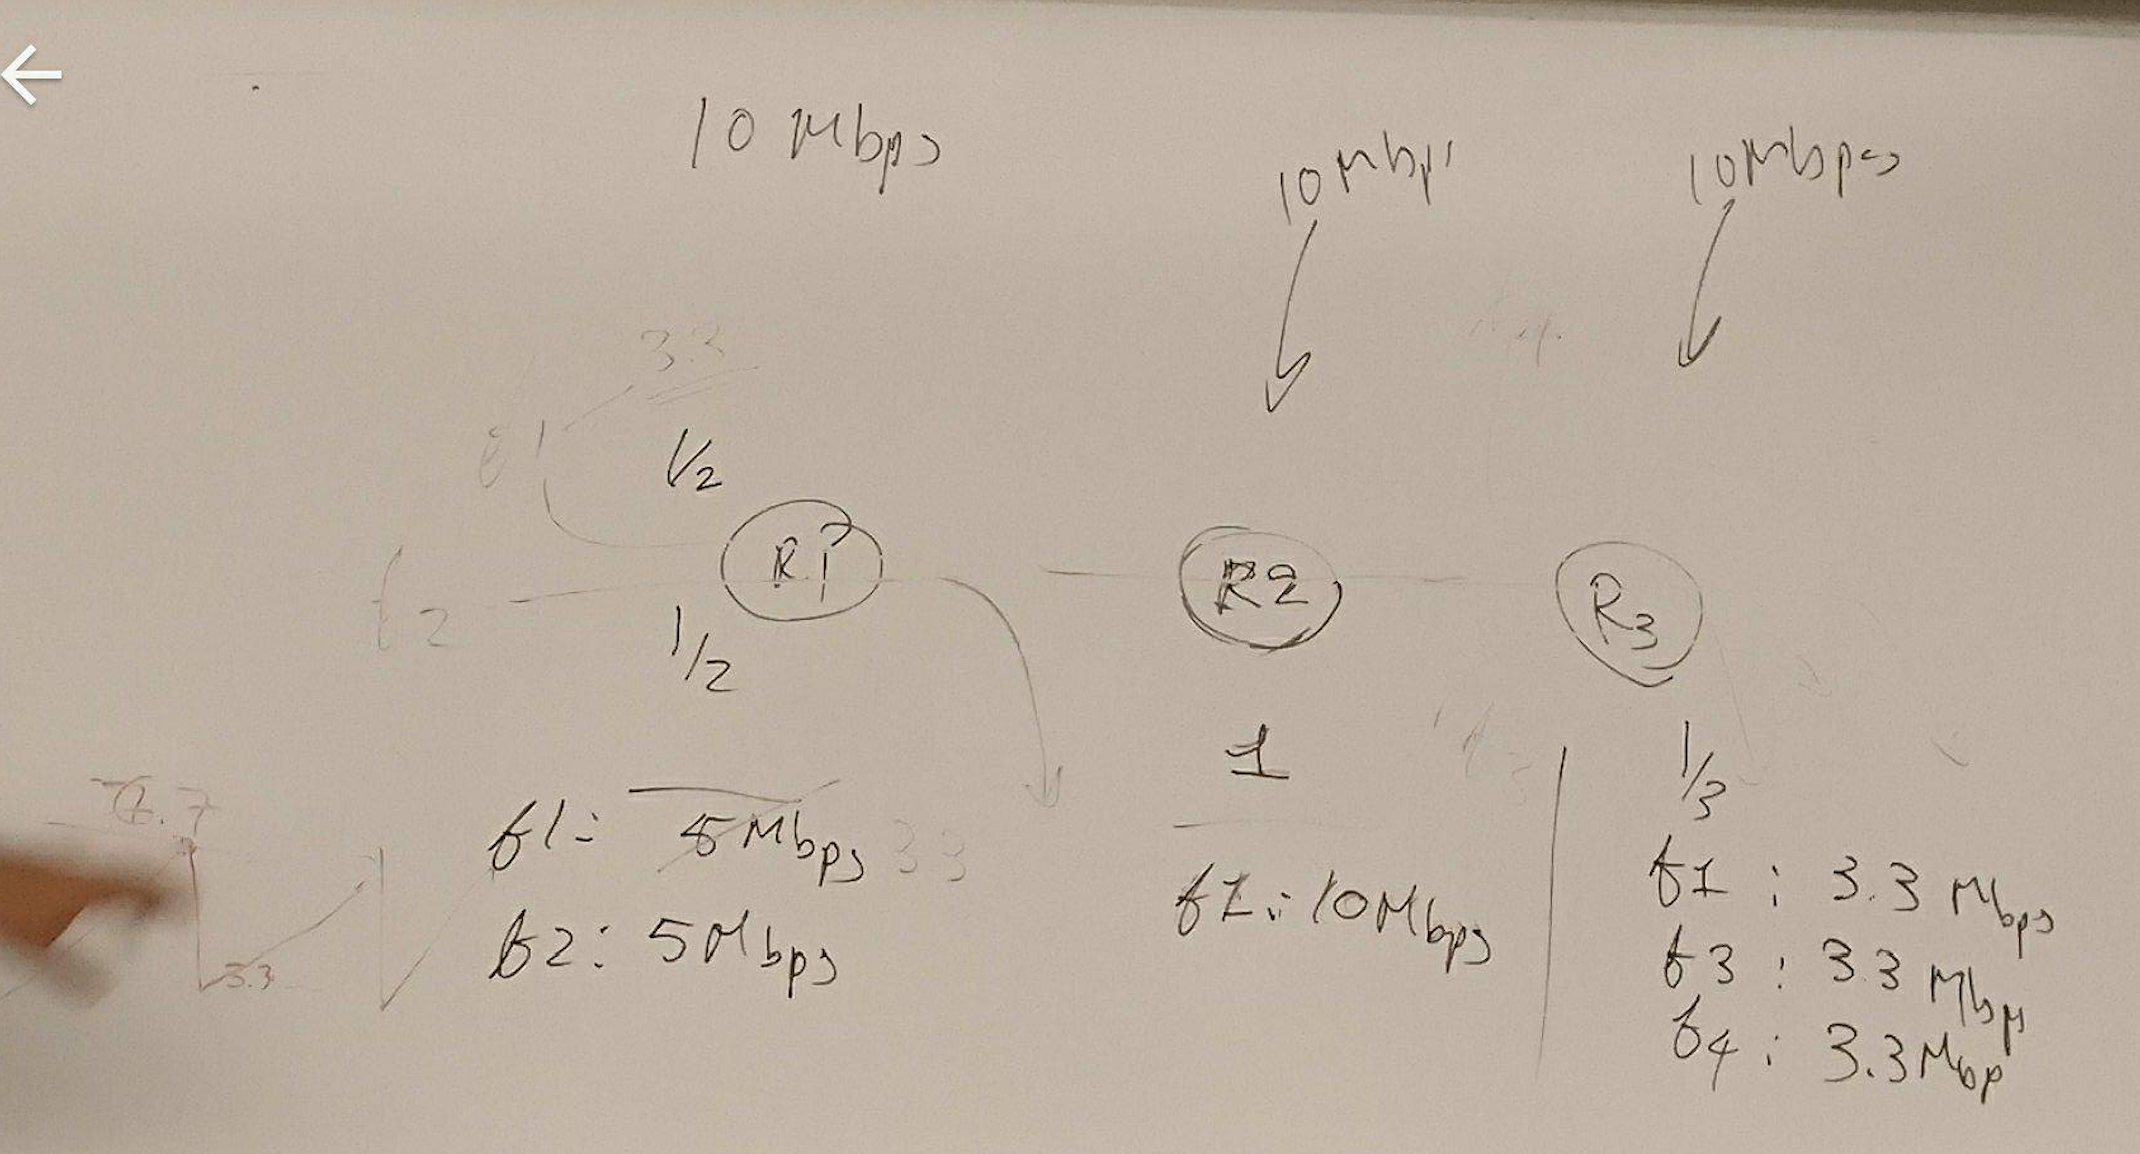 10 Mbps
10 Mbps
10 Mbps
3.3
f1
1/2
R1
R2
R3
f2
1/2
1
1/3
f1: 5 Mbps 3.3
f2: 5 Mbps
3.3
f1: 10 Mbps
f1: 3.3 Mbps
f3: 3.3 Mbps
f4: 3.3 Mbp